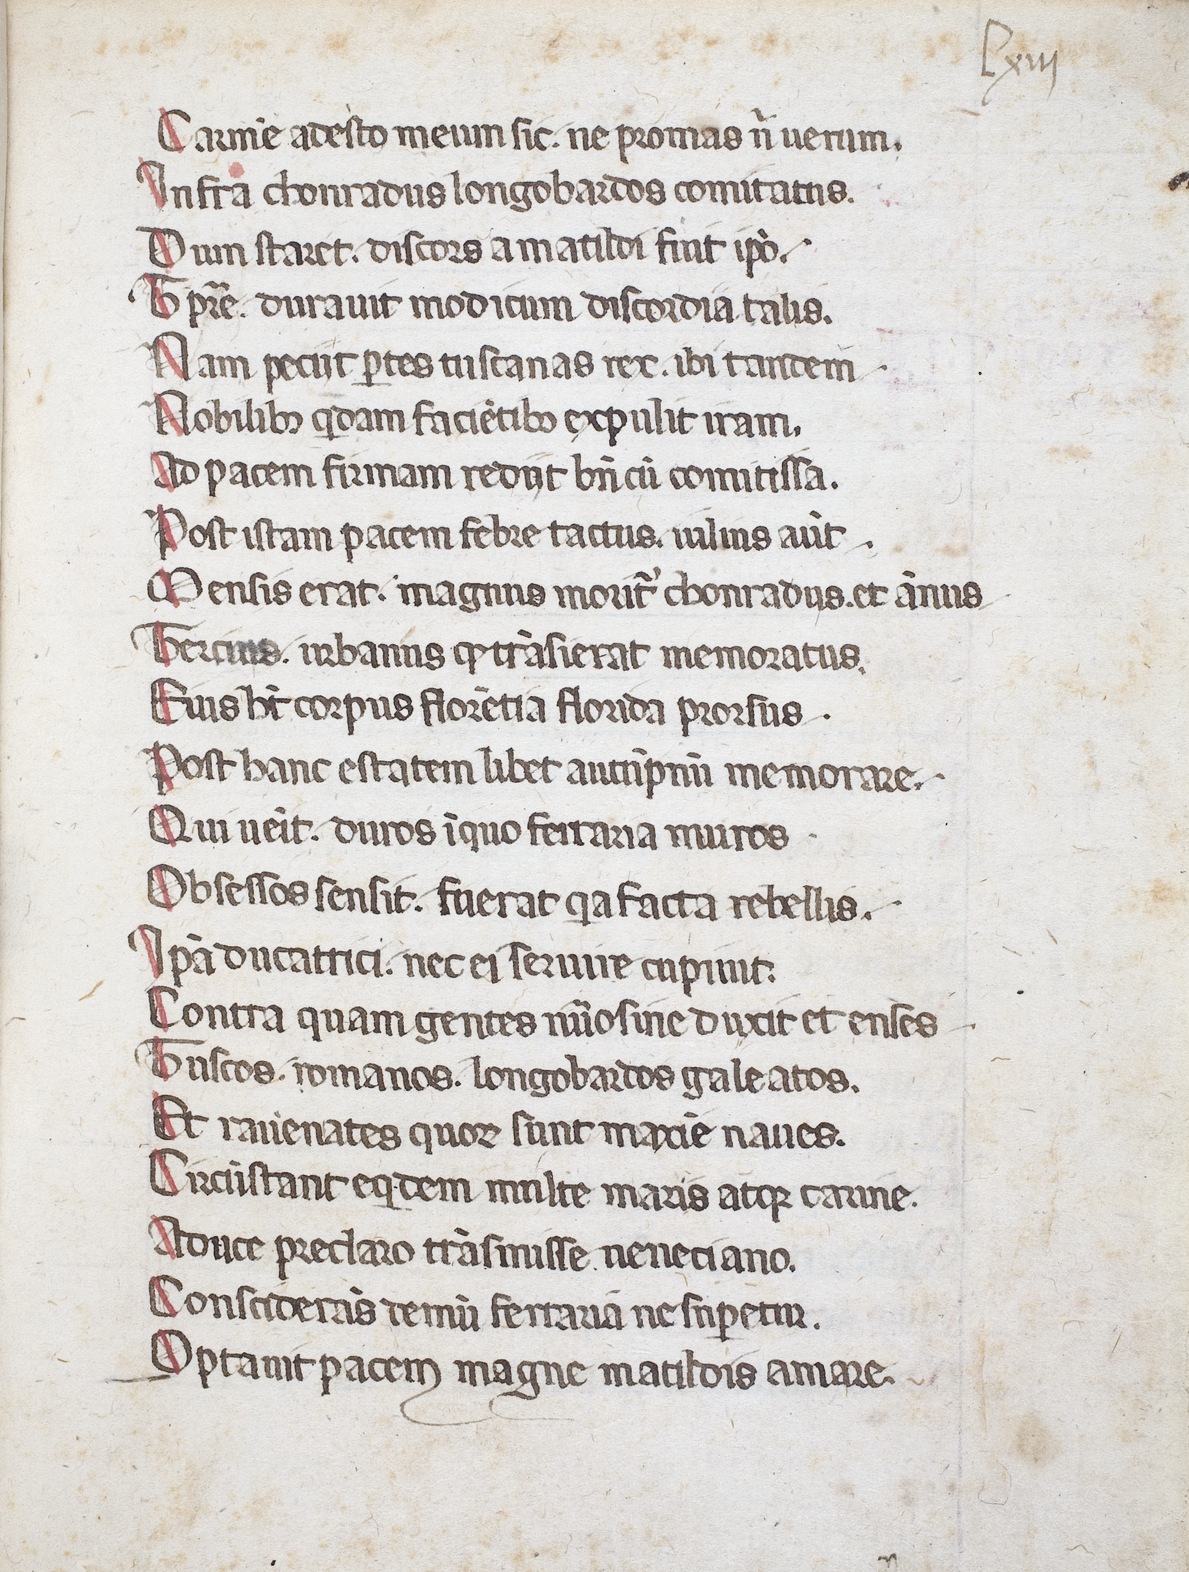 Lxiii
Carmīe adesto meum sic. ne promas n̄ uerum.
Infra chonradus longobardos comitatus.
Dum staret. discors a matildi fuit ip̄o.
Tp̄re. durauit modicum discordia talis.
Nam peciit ꝑtes tuscanas rex. ibi tandem
Nobilibꝫ qͥdam faciētibꝫ expulit iram.
Ad pacem firmam rediit bn̄ cū comitissa.
Post istam pacem febre tactus. iulius aūt.
Mensis erat. magnus morit᷑ chonradus. et ānus
Tercius. urbanus qͦ trāsierat memoratus.
Eius ht̄ corpus florētia florida prorsus.
Post hanc estatem libet autūpnū memorare.
Qui uēit. duros ī quo ferraria muros
Obsessos sensit. fuerat qͥa facta rebellis.
Ip̄a ducatrici. nec ei seruire cupiunt.
Contra quam gentes nūosine duxit et enses
Tuscos. romanos. longobardos galeatos.
Et rauenates quoꝝ sunt maxīe naues.
Circūstant eqͥdem multe maris atqꝫ carine.
A duce preclaro trāsmisse ueneciano.
Considerās demū ferrariā ne suꝑetur.
Optauit pacem magne matildis amare.